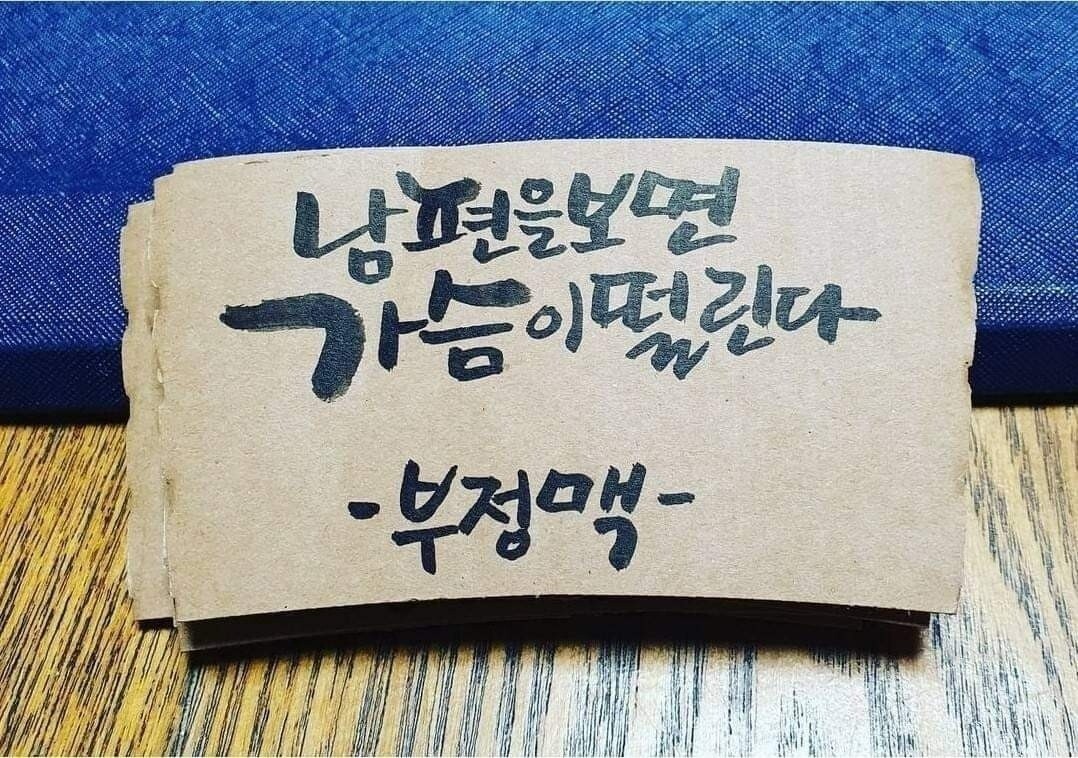 남편을보면
가슴이떨린다
-부정맥-